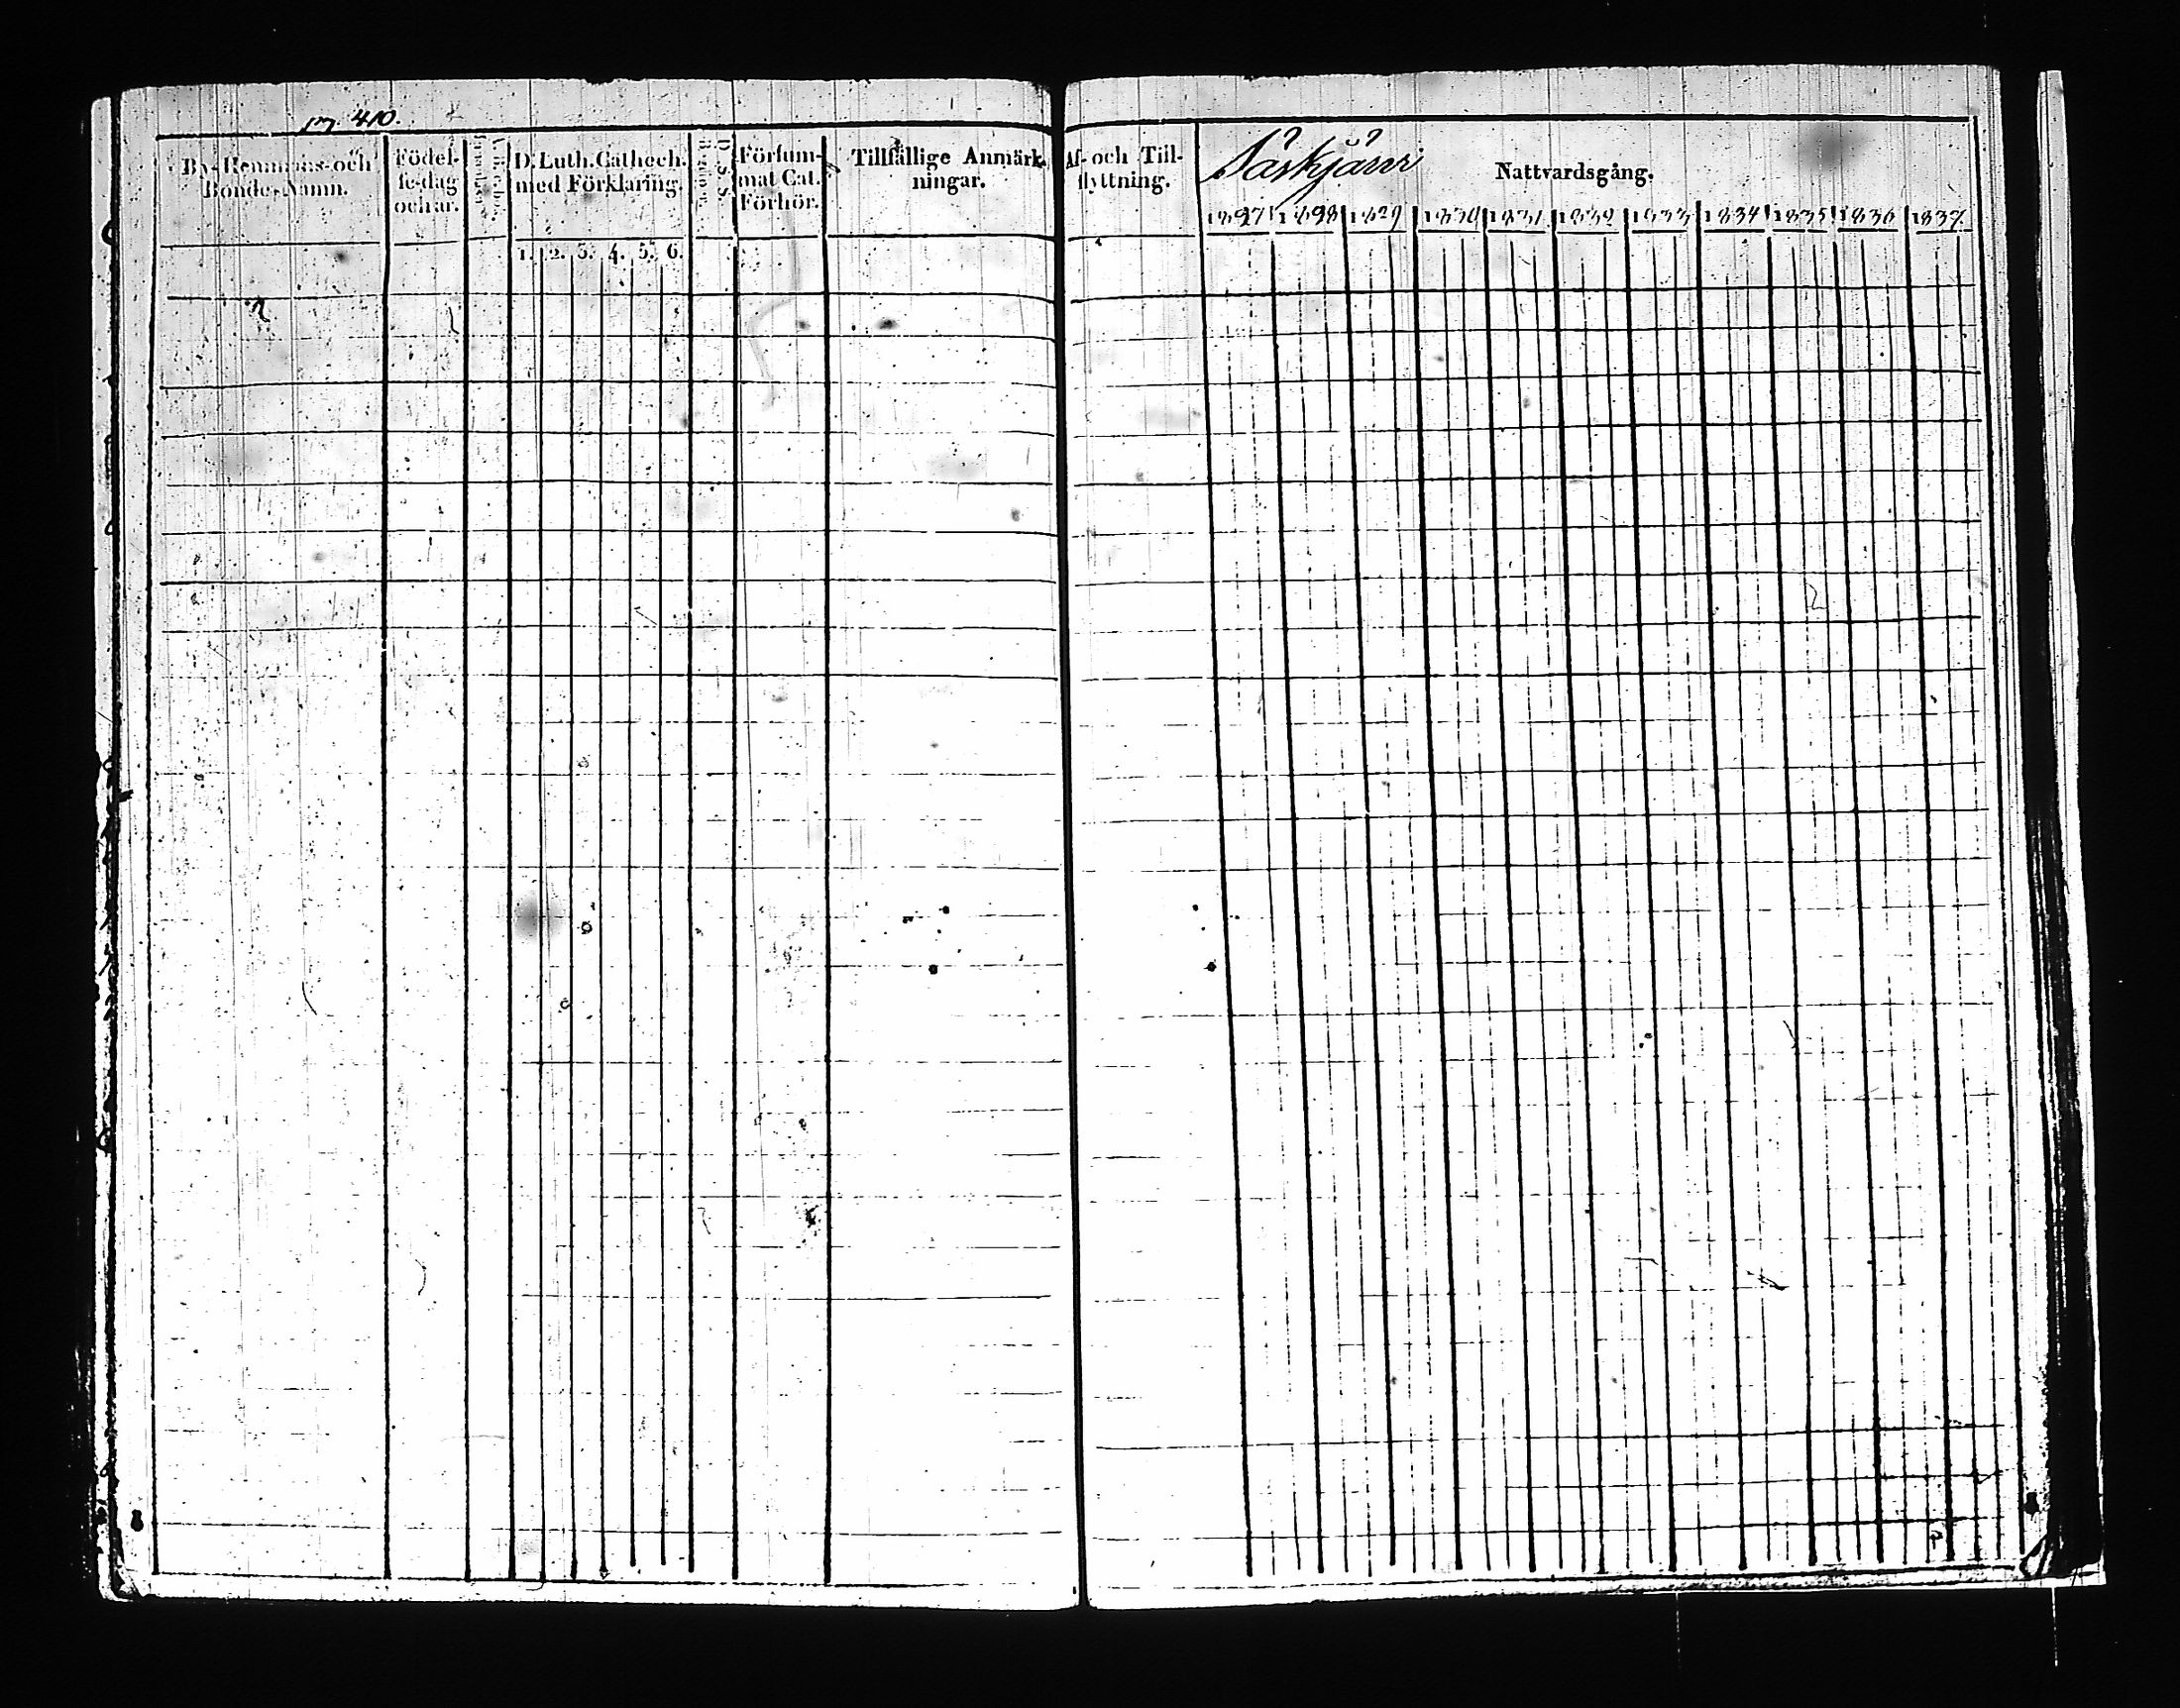 pag. 410.
By-Hemmans-och Bonde-Namn.
Födel-se-dag och år.
D. Luth. Cathech. med Förklaring.
1. 2. 3. 4. 5. 6.
D. S. S.
Försum-mat Cat. Förhör.
Tillfällige Anmärk-ningar.
Af- och Till-flyttning.
Nattvardsgång.
1827 1828 1829 1830 1831 1832 1833 1834 1835 1836 1837